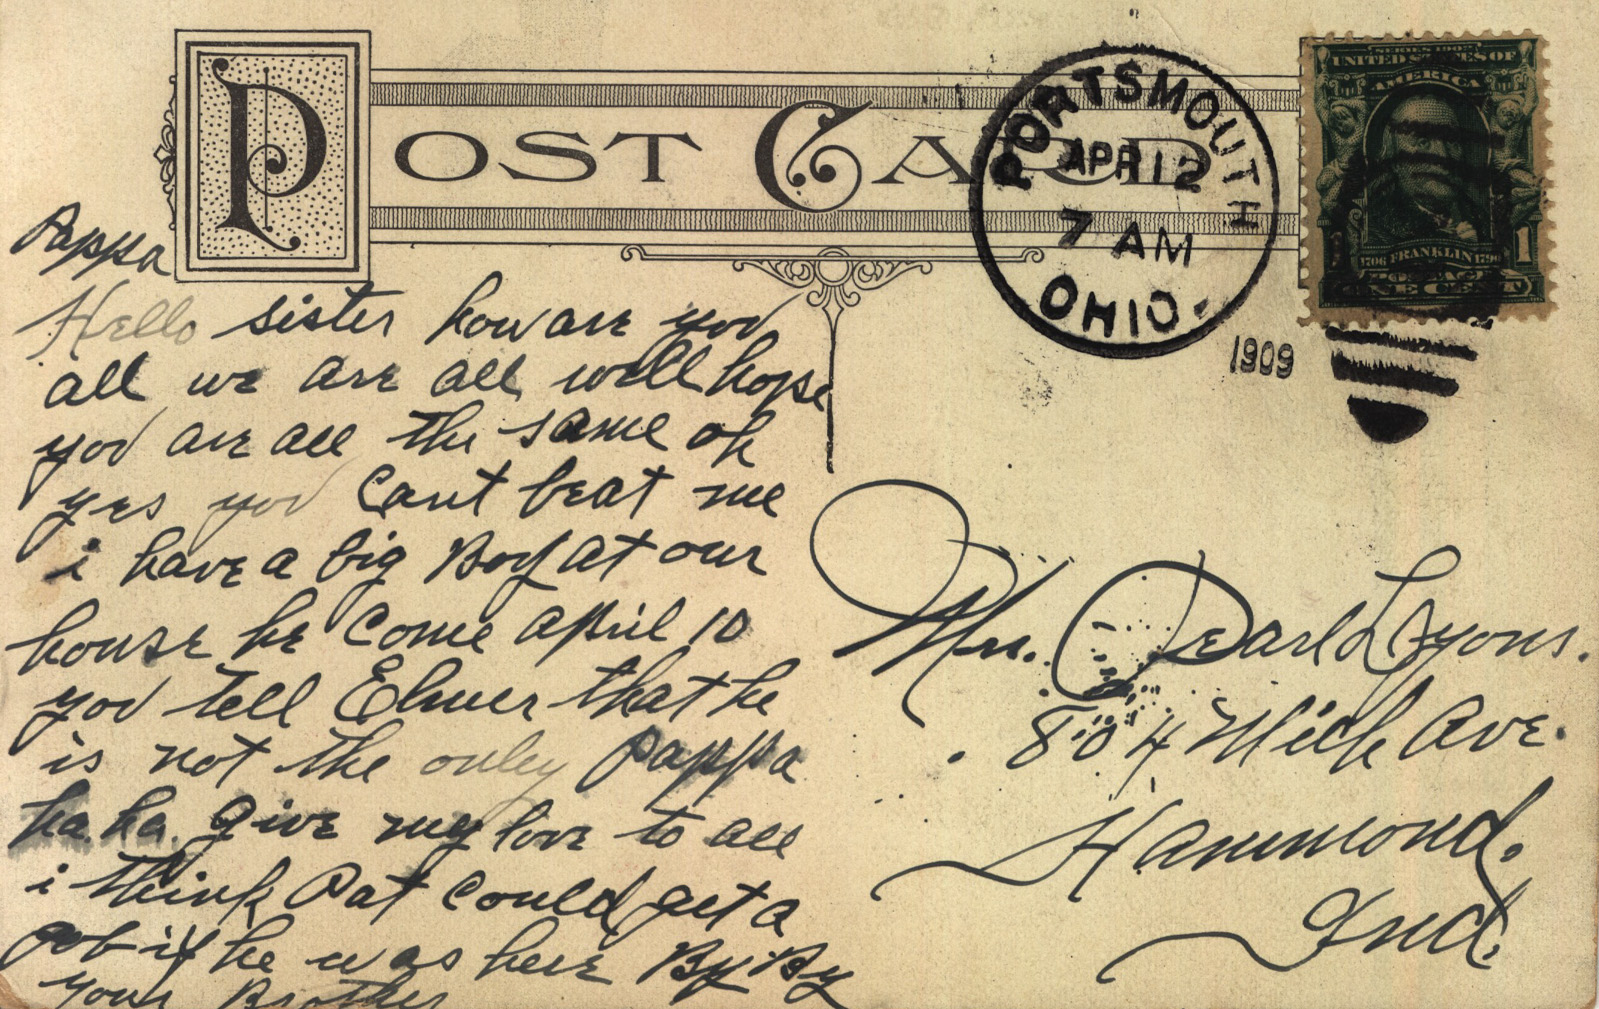 POST CARD
PORTSMOUTH
APR 12
7 AM
OHIO.
1909
SERIES 1902
UNITED STATES OF
AMERICA
1706 FRANKLIN 1790
1
POSTAGE
ONE CENT
Pappa
Hello sister how are you
all we are all well hope
you are all the same oh
yes you cant beat me
i have a big Boy at our
house he come april 10
you tell Elmer that he
is not the onley pappa
ha. ha. give my love to all
i think Pat could get a
gob if he was here By By
your Brother
Mrs. Pearl Lyons.
804 Mich Ave.
Hammond.
Ind.